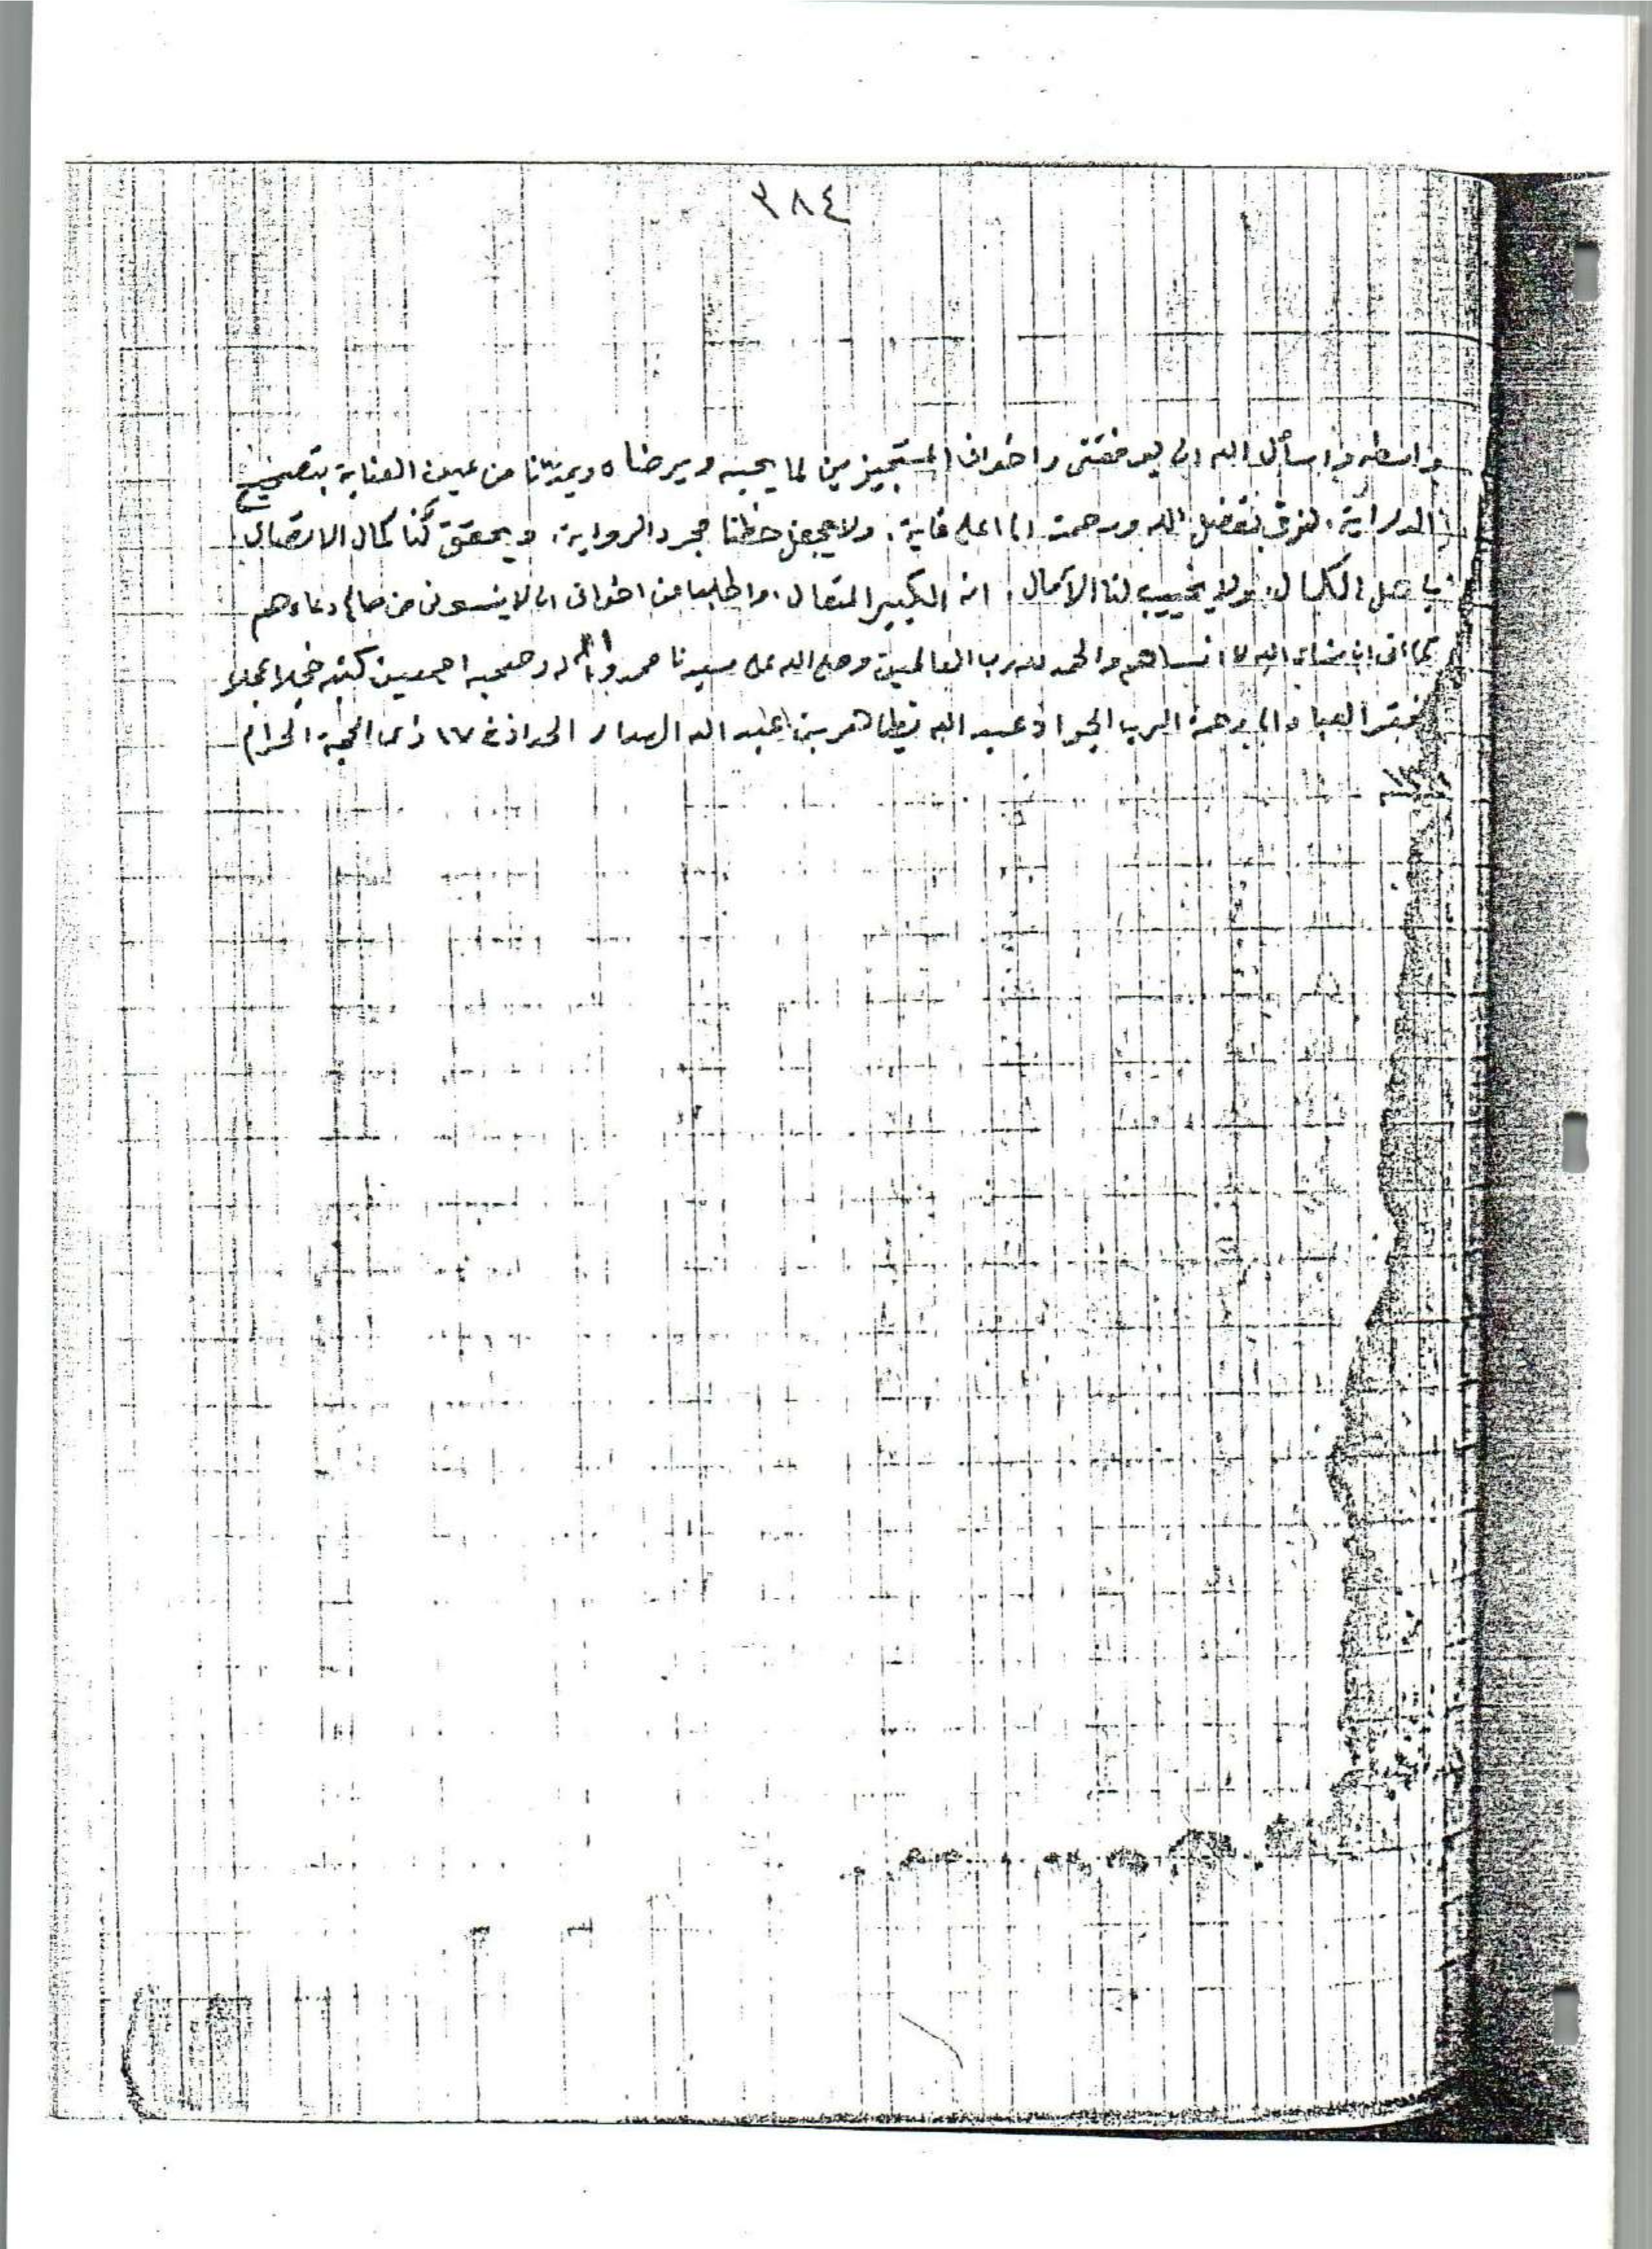 ٣٨٤
واسطه واسأل الله ان يوفقنى واخوانى المستجيزين لما يحبه ويرضاه ويمدّنا من عين العناية بتصحيح
الدراية، لنرقى بفضل الله ورحمته الى اعلى غاية، ولا يجعل حظنا مجرد الرواية، ويحقق لنا كمال الاتصال
باهل الكمال، ولا يخيب لنا الآمال، انه الكبير المتعال، واطلب من اخوانى ان لا ينسونى من صالح دعاءهم
كما انى ان شاء الله لا انساهم والحمد لله رب العالمين وصلى الله على سيدنا محمد وآله وصحبه اجمعين كتبه خجلا عجلا
فقير العباد الى رحمة الرب الجواد عبد الله بن طاهر بن عبد الله الهدار الحداد فى ١٧ ذى الحجة الحرام